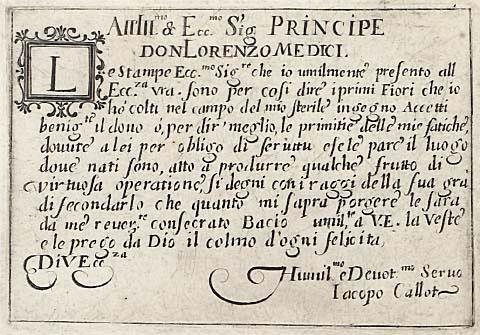 All Ill.mo & Ecc.mo Sig. PRINCIPE
DON LORENZO MEDICI.
Le Stampe Ecc.mo Sig.re che io umilmente presento all
Ecc.za vra. sono per cosi dire i primi Fiori che io
ho colti nel campo del mio sterile ingegno Accetti
benig.te il dono ó, per dir' meglio, le primitie delle mie fatiche,
dovute a lei per obligo di seruitu e se le pare il luogo
dove nati sono, atto a produrre qualche frutto di
virtuosa operatione, si degni con i raggi della sua gra.
di fecondarlo che quanto mi sapra porgere le sara
da me rever.te consecrato Bacio umil.te a V.E. la Veste
e le prego da Dio il colmo d'ogni felicita,
Di V. Ecc.za
Humil.mo e Devot.mo Servo
Iacopo Callot